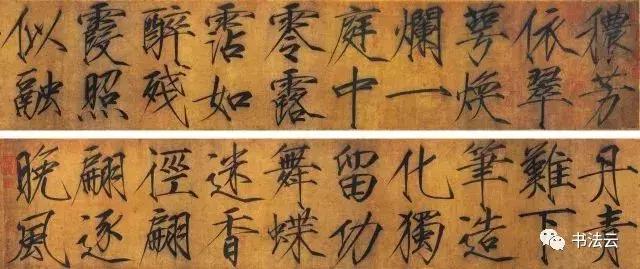 穠芳
依翠
萼煥
爛一
庭中
零露
霑如
醉残
霞照
似融
丹青
難下
筆造
化獨
留功
舞蝶
迷香
徑翩
翩逐
晚風
书法云